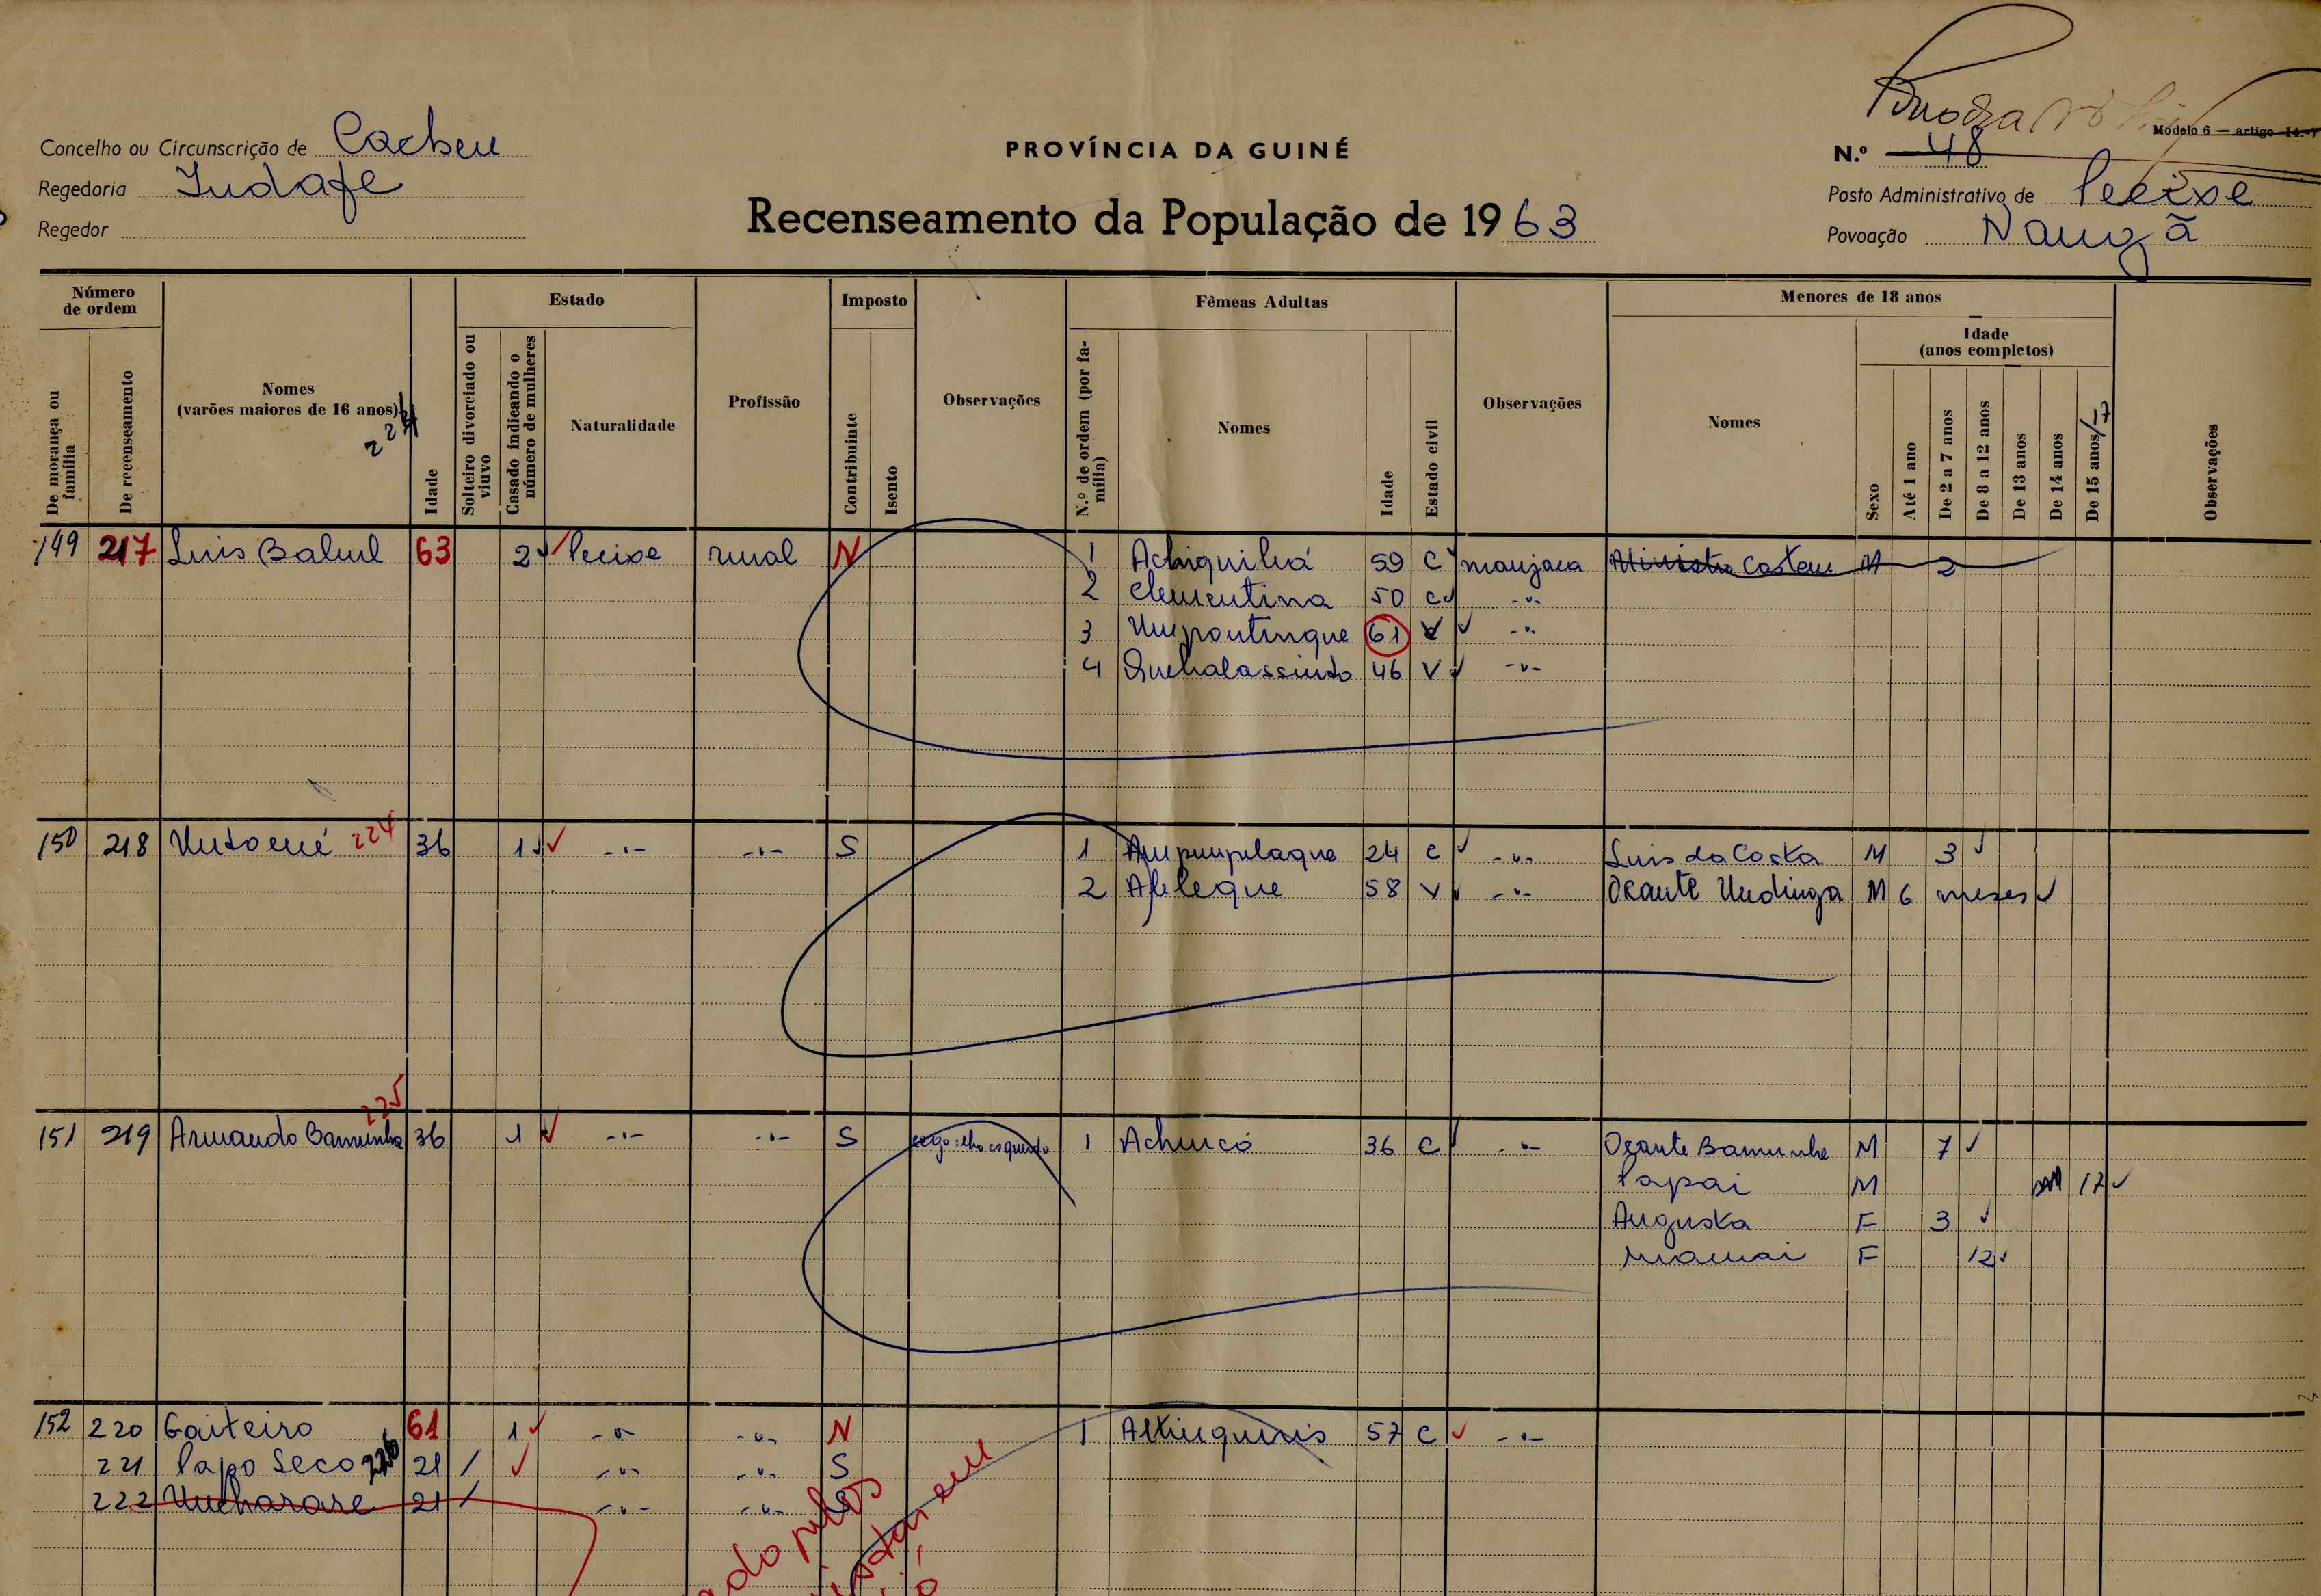 Concelho ou Circunscrição de Cacheu
Regedoria Indafe
Regedor
PROVÍNCIA DA GUINÉ
Recenseamento da População de 1963
Modelo 6 — artigo 14.º
N.º 48
Posto Administrativo de Pecixe
Povoação Nangã
Número de ordem
Estado
Imposto
Fêmeas Adultas
Menores de 18 anos
Idade (anos completos)
De morança ou família
De recenseamento
Nomes (varões maiores de 16 anos)
224
Idade
Solteiro divorciado ou viuvo
Casado indicando o número de mulheres
Naturalidade
Profissão
Contribuinte
Isento
Observações
N.º de ordem (por família)
Nomes
Idade
Estado civil
Observações
Nomes
Sexo
Até 1 ano
De 2 a 7 anos
De 8 a 12 anos
De 13 anos
De 14 anos
De 15 anos /17
Observações
149 217 Luis Balul 63 2 Pecixe rural N 1 Achiquilhá 59 C manjaca Costa M 2
2 Clementina 50 C -"-
3 Umpontinque 61 V -"-
4 Quehalassinto 46 V -"-
150 218 Untoené 224 36 1 -"- -"- S 1 Ampumpulaque 24 C -"- Luis da Costa M 3
2 Afileque 58 V -"- Ocante Undinga M 6 meses
225
151 219 Armando Bamunha 36 1 -"- -"- S cego olho esquerdo 1 Achucó 36 C -"- Ocante Bamunha M 7
Papai M 17
Augusta F 3
Mamai F 12
152 220 Gaiteiro 61 1 -"- -"- N 1 Altinquinis 57 C -"-
221 Papo Seco 226 21 / -"- -"- S
222 Uncharare 21 / -"- -"-